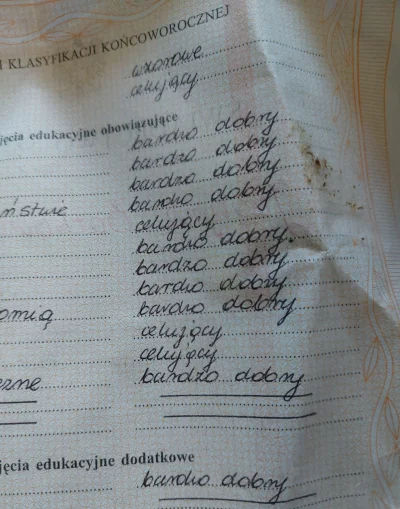 I KLASYFIKACJI KOŃCOWOROCZNEJ
wzorowe
celujący
jęcia edukacyjne obowiązujące
bardzo dobry
bardzo dobry
bardzo dobry
ństwie bardzo dobry
celujący
bardzo dobry.
bardzo dobry
bardzo dobry
omią bardzo dobry
celujący
celujący
czne bardzo dobry
jęcia edukacyjne dodatkowe
bardzo dobry